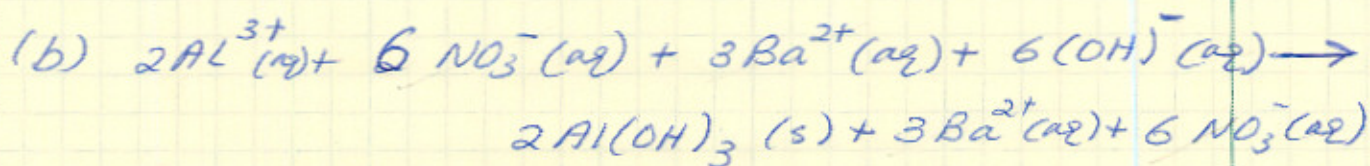 (b) 2AL³⁺(aq) + 6 NO₃⁻(aq) + 3Ba²⁺(aq) + 6(OH)⁻(aq) ⟶
2Al(OH)₃ (s) + 3Ba²⁺(aq) + 6 NO₃⁻(aq)